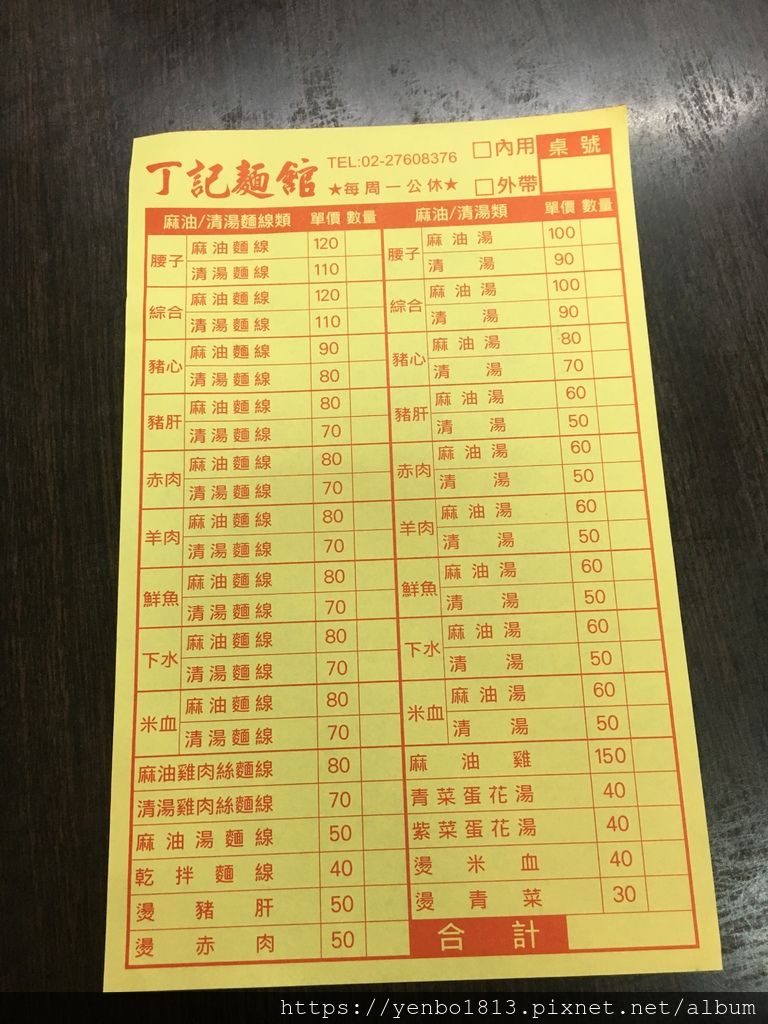 丁記麵館 TEL:02-27608376 □內用 桌號
★每周一公休★ □外帶
麻油/清湯麵線類 單價 數量 麻油/清湯類 單價 數量
腰子 麻油麵線 120 腰子 麻油湯 100
清湯麵線 110 清湯 90
綜合 麻油麵線 120 綜合 麻油湯 100
清湯麵線 110 清湯 90
豬心 麻油麵線 90 豬心 麻油湯 80
清湯麵線 80 清湯 70
豬肝 麻油麵線 80 豬肝 麻油湯 60
清湯麵線 70 清湯 50
赤肉 麻油麵線 80 赤肉 麻油湯 60
清湯麵線 70 清湯 50
羊肉 麻油麵線 80 羊肉 麻油湯 60
清湯麵線 70 清湯 50
鮮魚 麻油麵線 80 鮮魚 麻油湯 60
清湯麵線 70 清湯 50
下水 麻油麵線 80 下水 麻油湯 60
清湯麵線 70 清湯 50
米血 麻油麵線 80 米血 麻油湯 60
清湯麵線 70 清湯 50
麻油雞肉絲麵線 80 麻油雞 150
清湯雞肉絲麵線 70 青菜蛋花湯 40
麻油湯麵線 50 紫菜蛋花湯 40
乾拌麵線 40 燙米血 40
燙豬肝 50 燙青菜 30
燙赤肉 50 合計
https://yenbo1813.pixnet.net/album